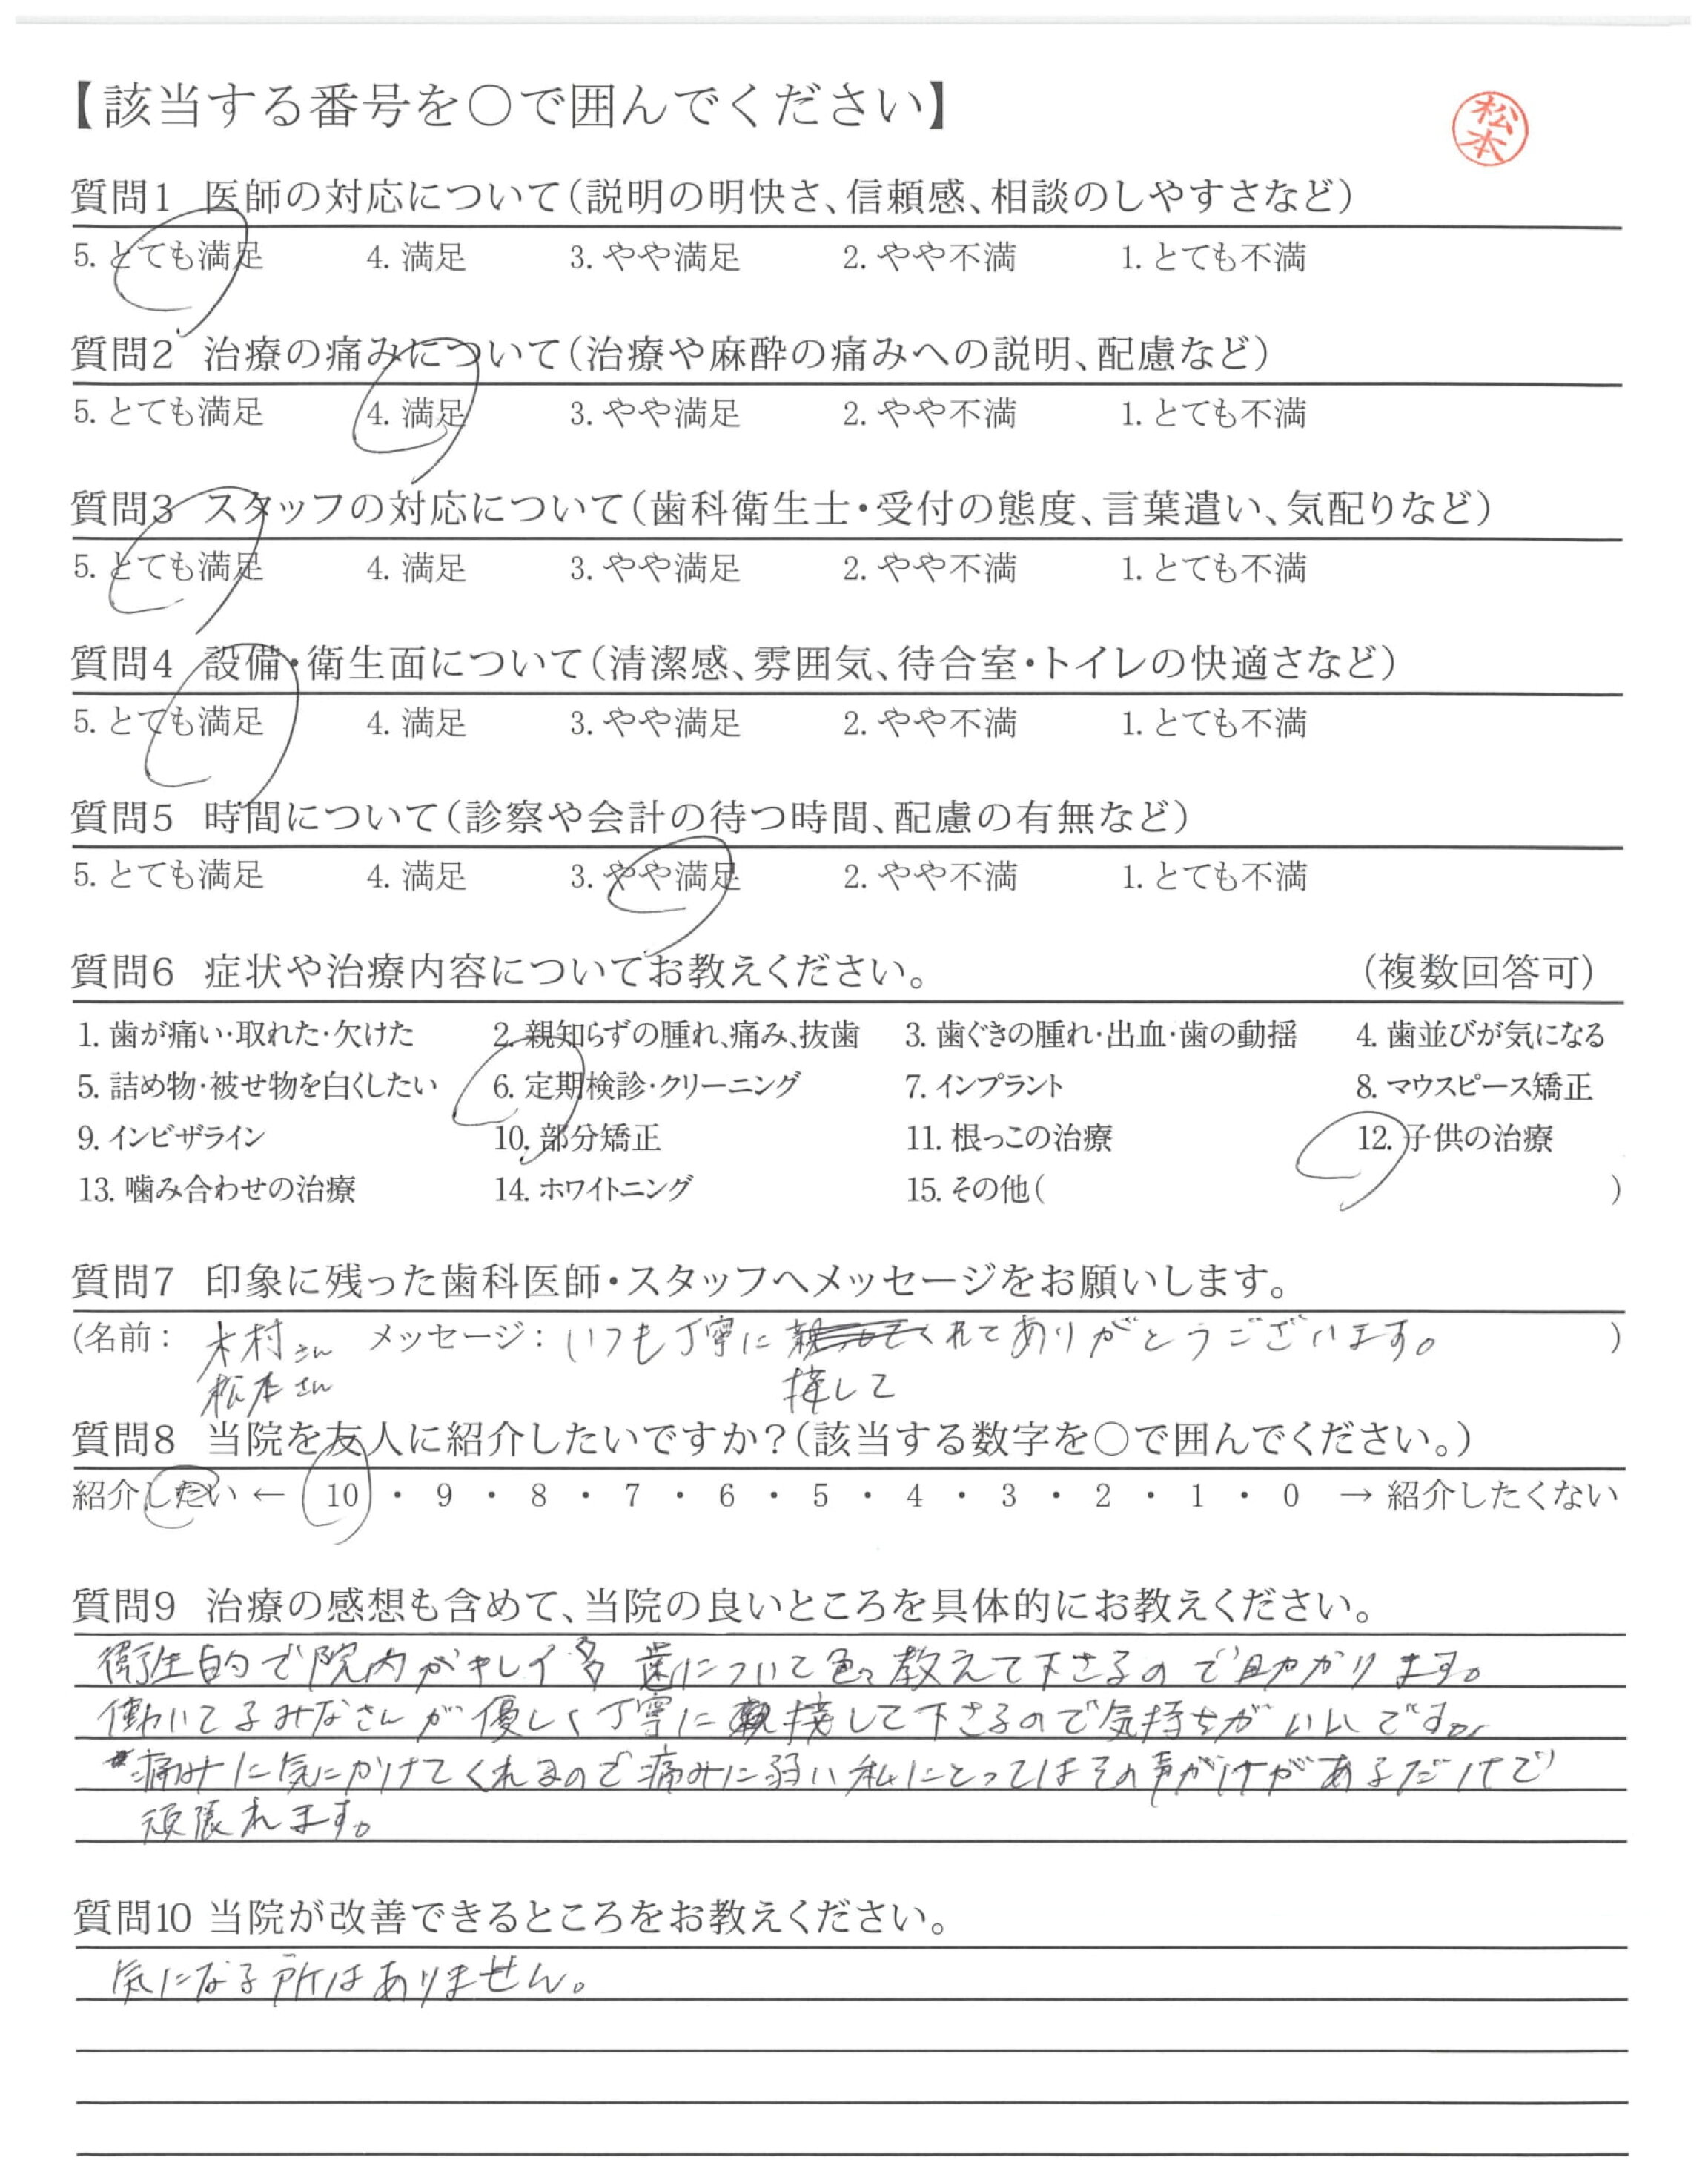 【該当する番号を○で囲んでください】
松本
質問1 医師の対応について(説明の明快さ、信頼感、相談のしやすさなど)
5. とても満足 4. 満足 3. やや満足 2. やや不満 1. とても不満
質問2 治療の痛みについて(治療や麻酔の痛みへの説明、配慮など)
5. とても満足 4. 満足 3. やや満足 2. やや不満 1. とても不満
質問3 スタッフの対応について(歯科衛生士・受付の態度、言葉遣い、気配りなど)
5. とても満足 4. 満足 3. やや満足 2. やや不満 1. とても不満
質問4 設備・衛生面について(清潔感、雰囲気、待合室・トイレの快適さなど)
5. とても満足 4. 満足 3. やや満足 2. やや不満 1. とても不満
質問5 時間について(診察や会計の待つ時間、配慮の有無など)
5. とても満足 4. 満足 3. やや満足 2. やや不満 1. とても不満
質問6 症状や治療内容についてお教えください。 (複数回答可)
1. 歯が痛い・取れた・欠けた 2. 親知らずの腫れ、痛み、抜歯 3. 歯ぐきの腫れ・出血・歯の動揺 4. 歯並びが気になる
5. 詰め物・被せ物を白くしたい 6. 定期検診・クリーニング 7. インプラント 8. マウスピース矯正
9. インビザライン 10. 部分矯正 11. 根っこの治療 12. 子供の治療
13. 噛み合わせの治療 14. ホワイトニング 15. その他( )
質問7 印象に残った歯科医師・スタッフへメッセージをお願いします。
(名前: 木村さん メッセージ: いつも丁寧に くれてありがとうございます。 )
松本さん 接して
質問8 当院を友人に紹介したいですか?(該当する数字を○で囲んでください。)
紹介したい ← 10 ・ 9 ・ 8 ・ 7 ・ 6 ・ 5 ・ 4 ・ 3 ・ 2 ・ 1 ・ 0 → 紹介したくない
質問9 治療の感想も含めて、当院の良いところを具体的にお教えください。
衛生的で院内がキレイ 歯について色々教えて下さるので助かります。
働いてるみなさんが優しく丁寧に接して下さるので気持ちがいいです。
痛みに気にかけてくれるので痛みに弱い私にとってはその声がけがあるだけで
頑張れます。
質問10 当院が改善できるところをお教えください。
気になる所はありません。